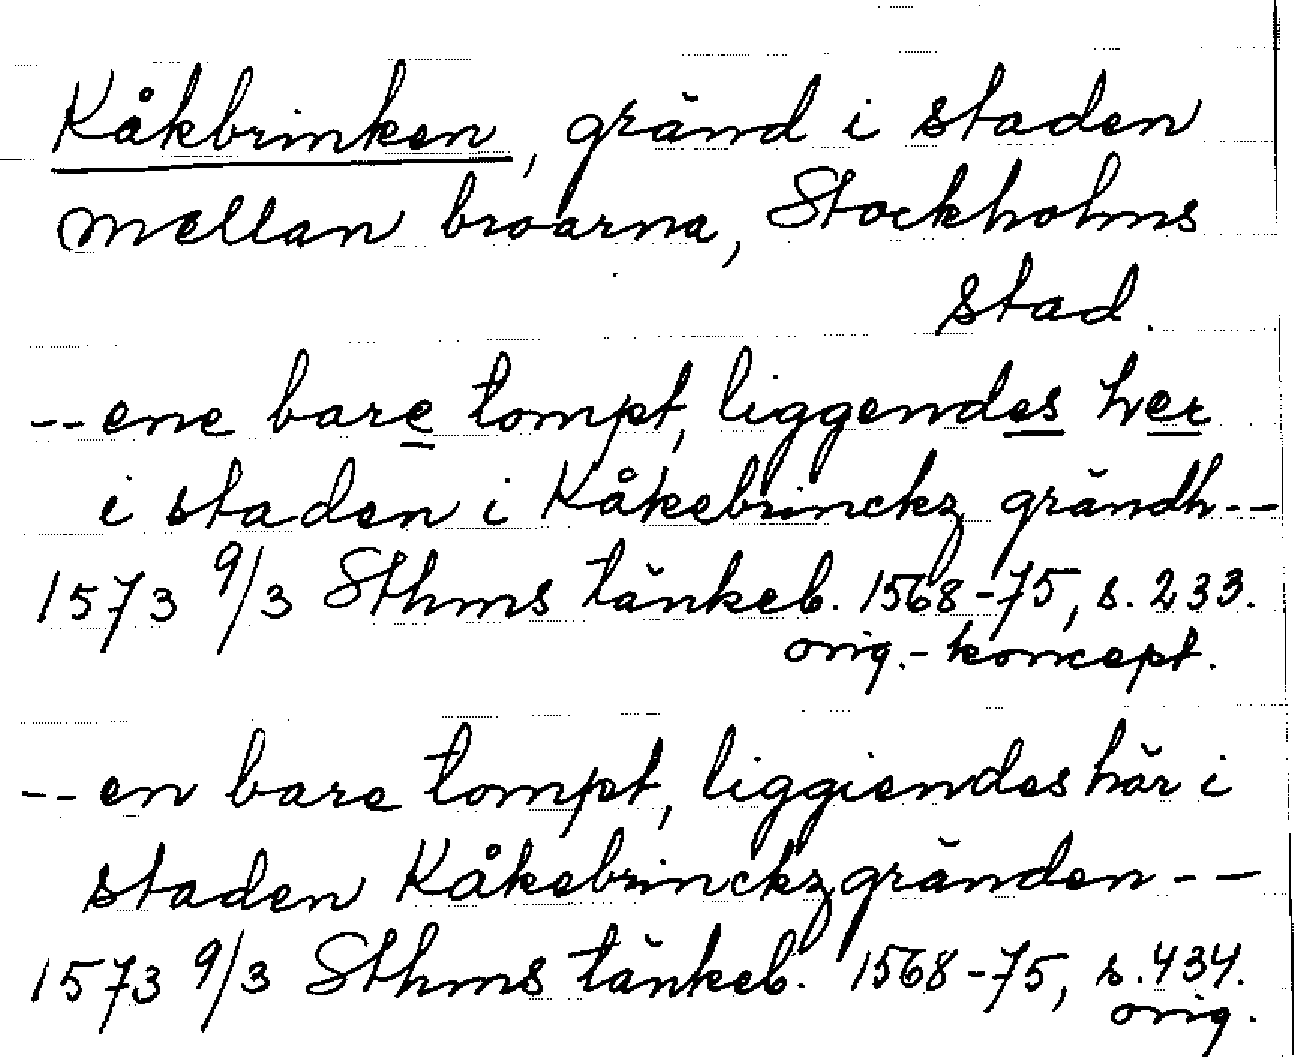 Kåkbrinken, gränd i staden
mellan broarna, Stockholms
stad.
--ene bare tompt, liggendes her
i staden i Kåkebrinckz grändh--
1573 9/3 Sthms tänkeb. 1568-75, s. 233.
orig.-koncept.
--en bare tompt, liggiendes här i
staden Kåkebrinckzgränden--
1573 9/3 Sthms tänkeb. 1568-75, s. 434.
orig.